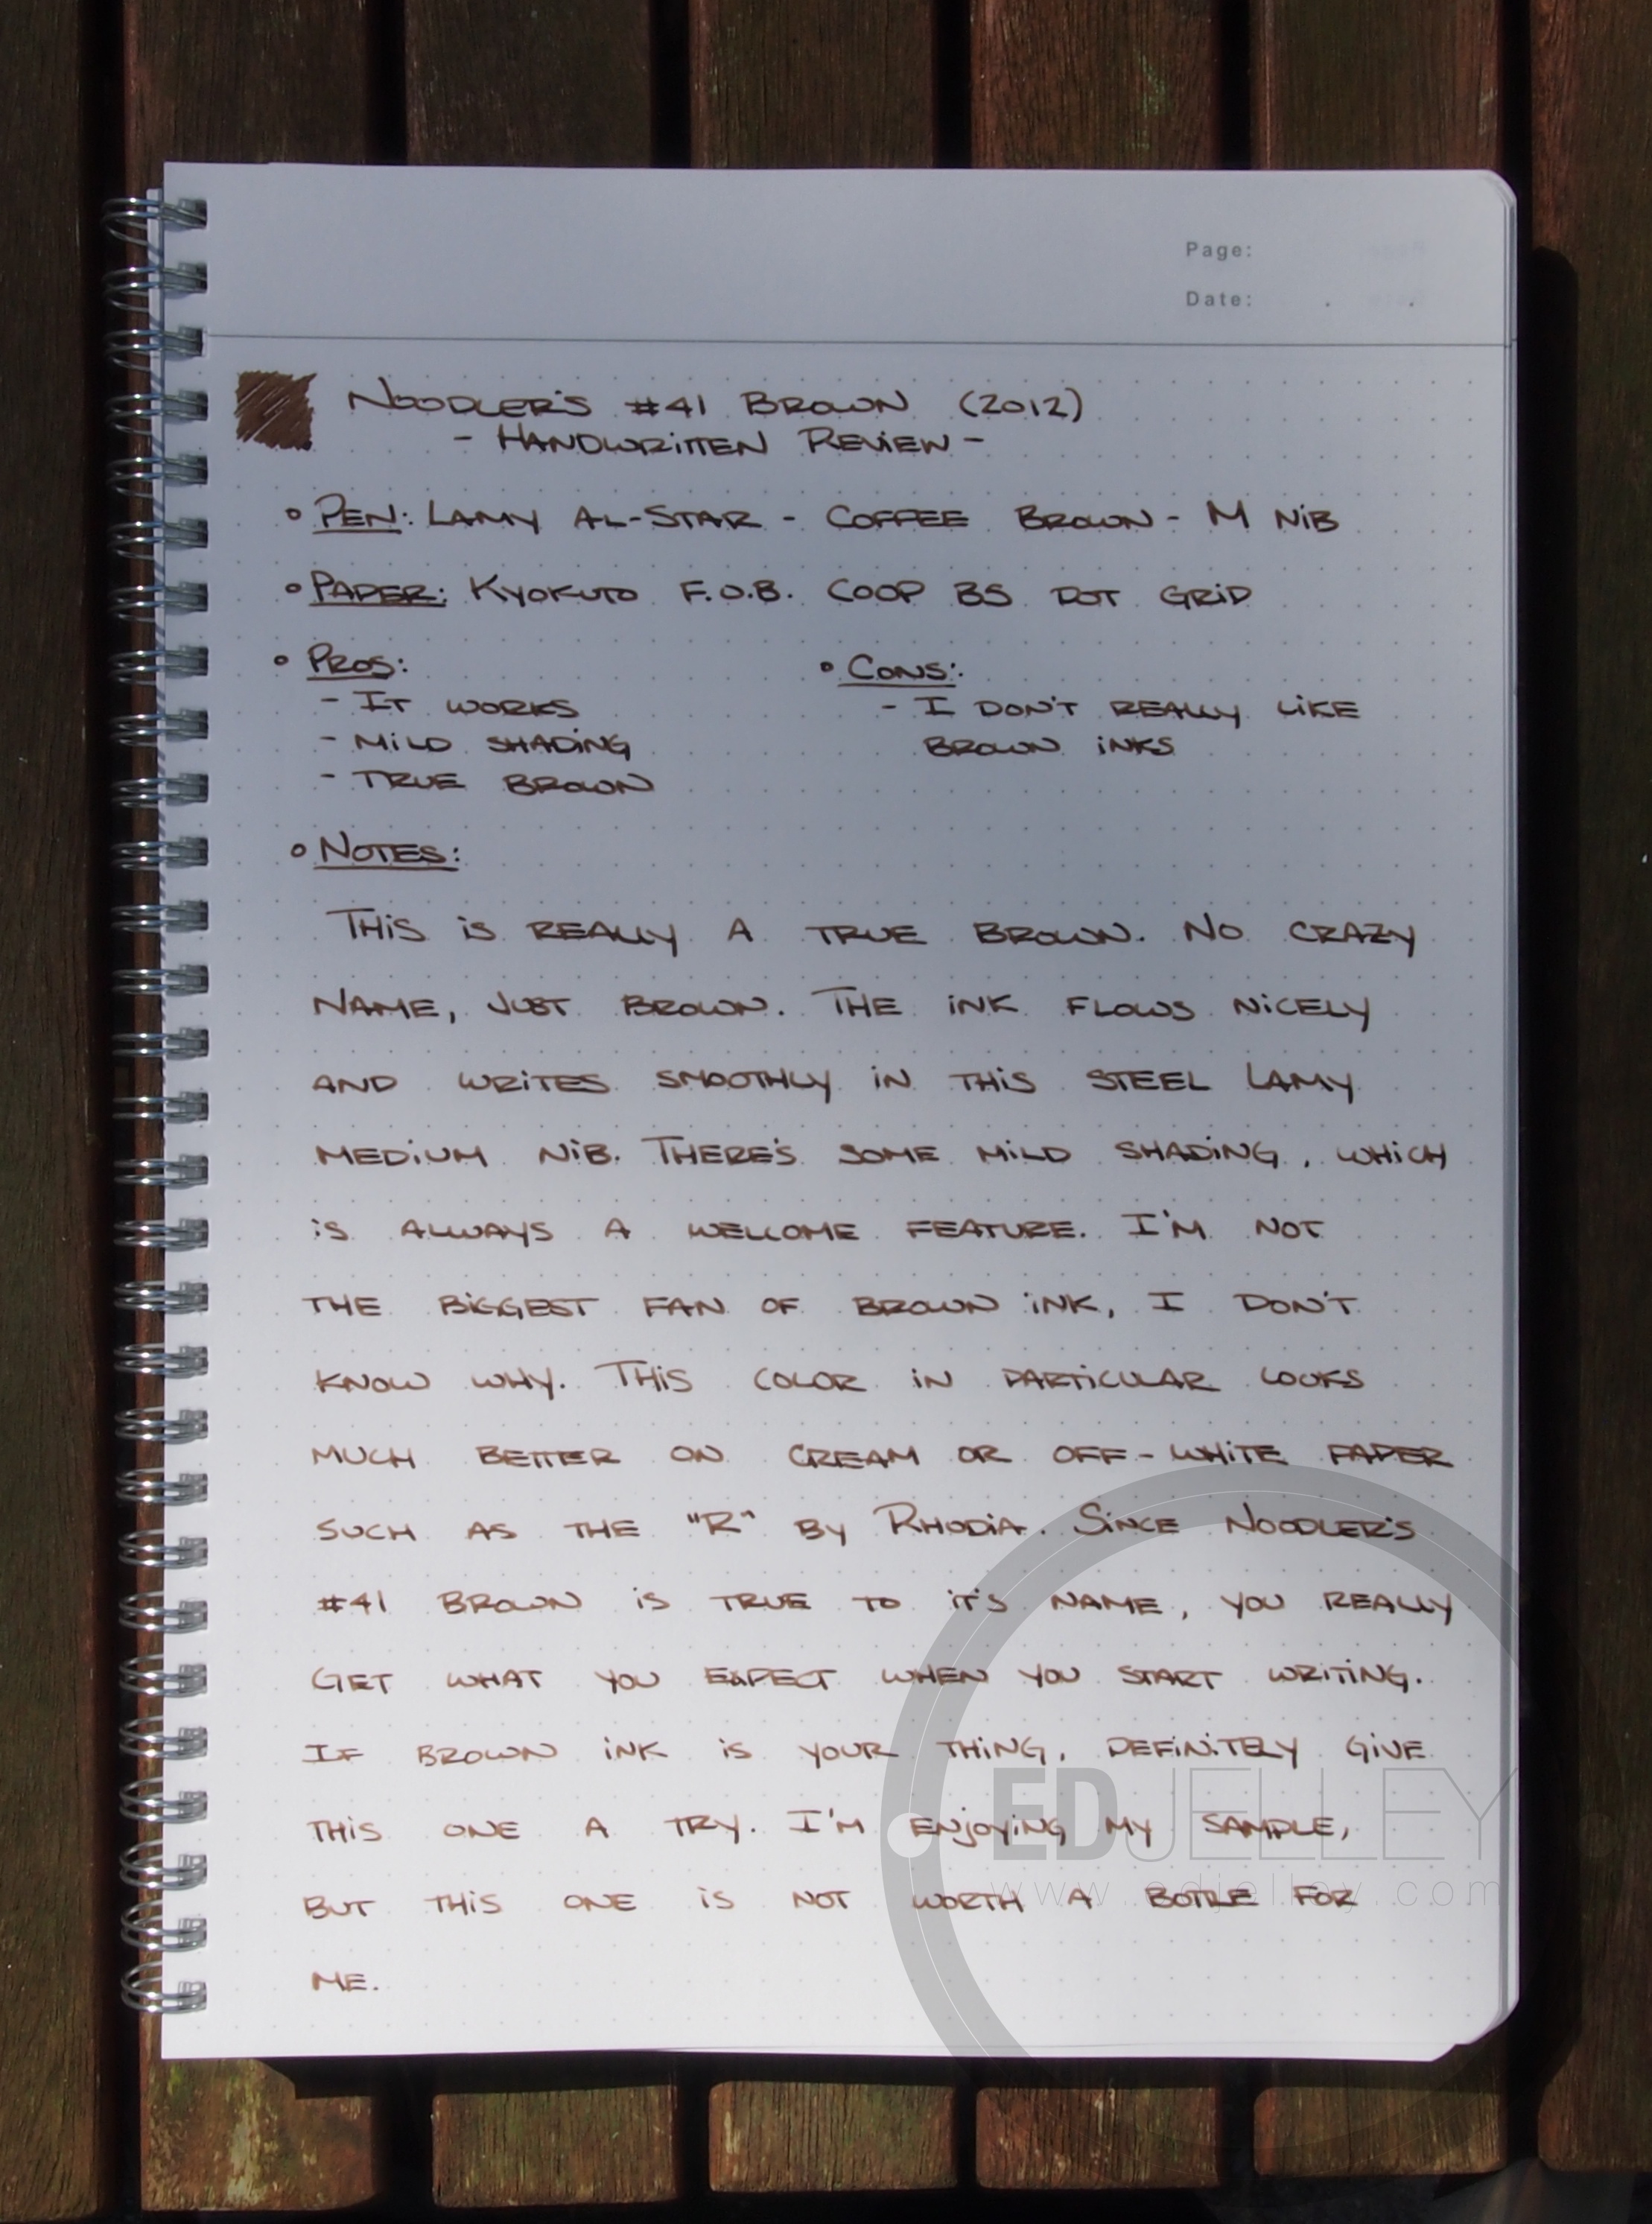 Page:
Date: . .
NOODLER'S #41 BROWN (2012)
- HANDWRITTEN REVIEW -
• PEN: LAMY AL-STAR - COFFEE BROWN - M NIB
• PAPER: KYOKUTO F.O.B. COOP B5 DOT GRID
• PROS:
- IT WORKS
- MILD SHADING
- TRUE BROWN
• CONS:
- I DON'T REALLY LIKE
BROWN INKS
• NOTES:
THIS IS REALLY A TRUE BROWN. NO CRAZY
NAME, JUST BROWN. THE INK FLOWS NICELY
AND WRITES SMOOTHLY IN THIS STEEL LAMY
MEDIUM NIB. THERE'S SOME MILD SHADING, WHICH
IS ALWAYS A WELCOME FEATURE. I'M NOT
THE BIGGEST FAN OF BROWN INK, I DON'T
KNOW WHY. THIS COLOR IN PARTICULAR LOOKS
MUCH BETTER ON CREAM OR OFF-WHITE PAPER
SUCH AS THE "R" BY RHODIA. SINCE NOODLER'S
#41 BROWN IS TRUE TO IT'S NAME, YOU REALLY
GET WHAT YOU EXPECT WHEN YOU START WRITING.
IF BROWN INK IS YOUR THING, DEFINITELY GIVE
THIS ONE A TRY. I'M ENJOYING MY SAMPLE,
BUT THIS ONE IS NOT WORTH A BOTTLE FOR
ME.
EDJELLEY
www.edjelley.com